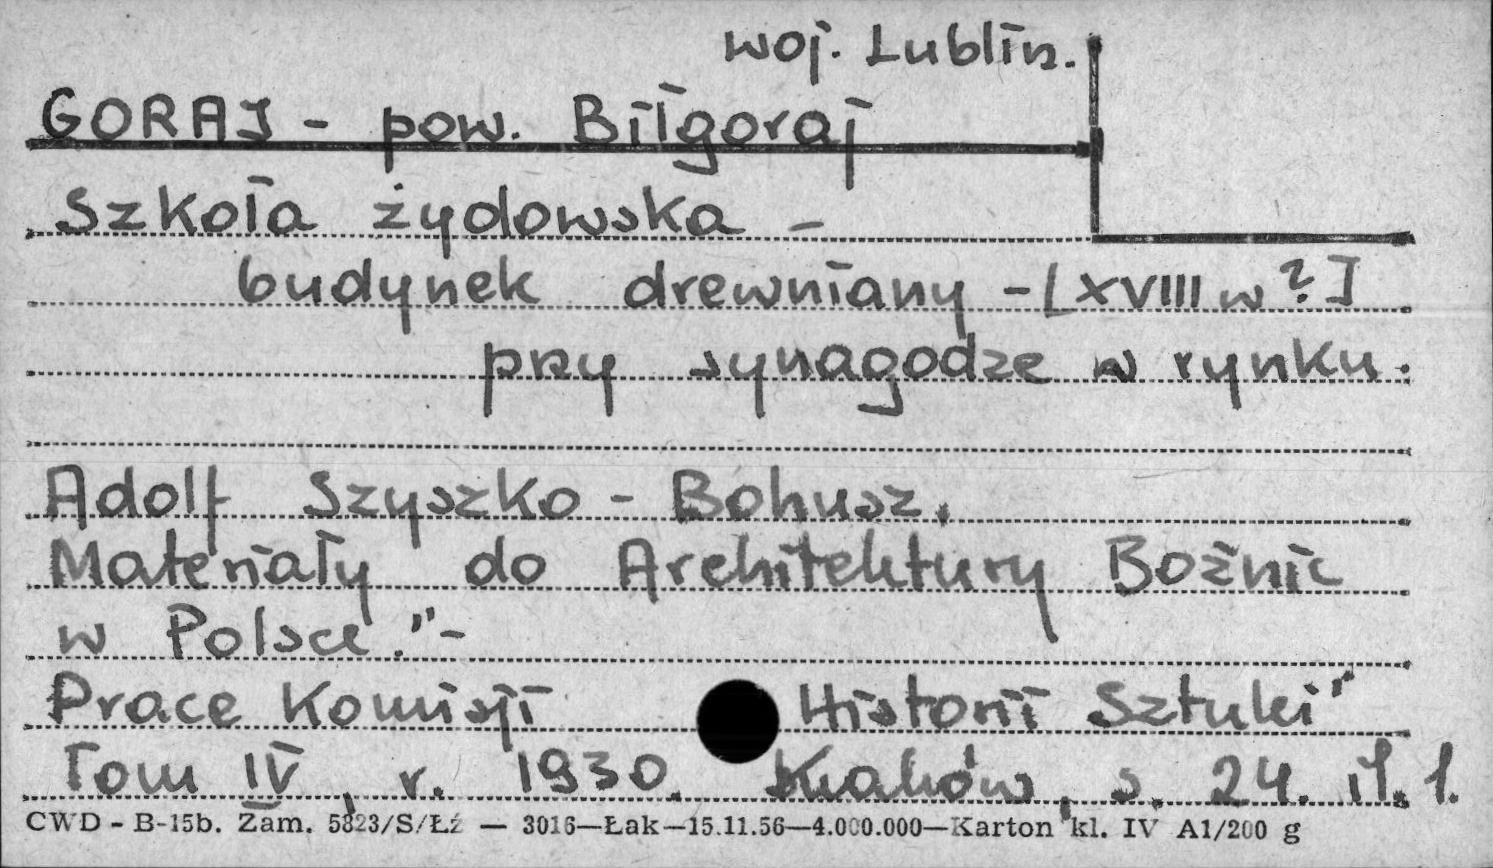 woj. Lublin.
GORAJ - pow. Biłgoraj
Szkoła żydowska -
budynek drewniany - [XVIII w ?]
przy synagodze w rynku.
Adolf Szyszko - Bohusz.
Materiały do Architektury Bożnic
w Polsce." -
Prace Komisji Historii Sztuki"
Tom IV, r. 1930. Kraków, s. 24. il. 1.
CWD - B-15b. Zam. 5823/S/Łź — 3016—Łak—15.11.56—4.000.000—Karton kl. IV A1/200 g